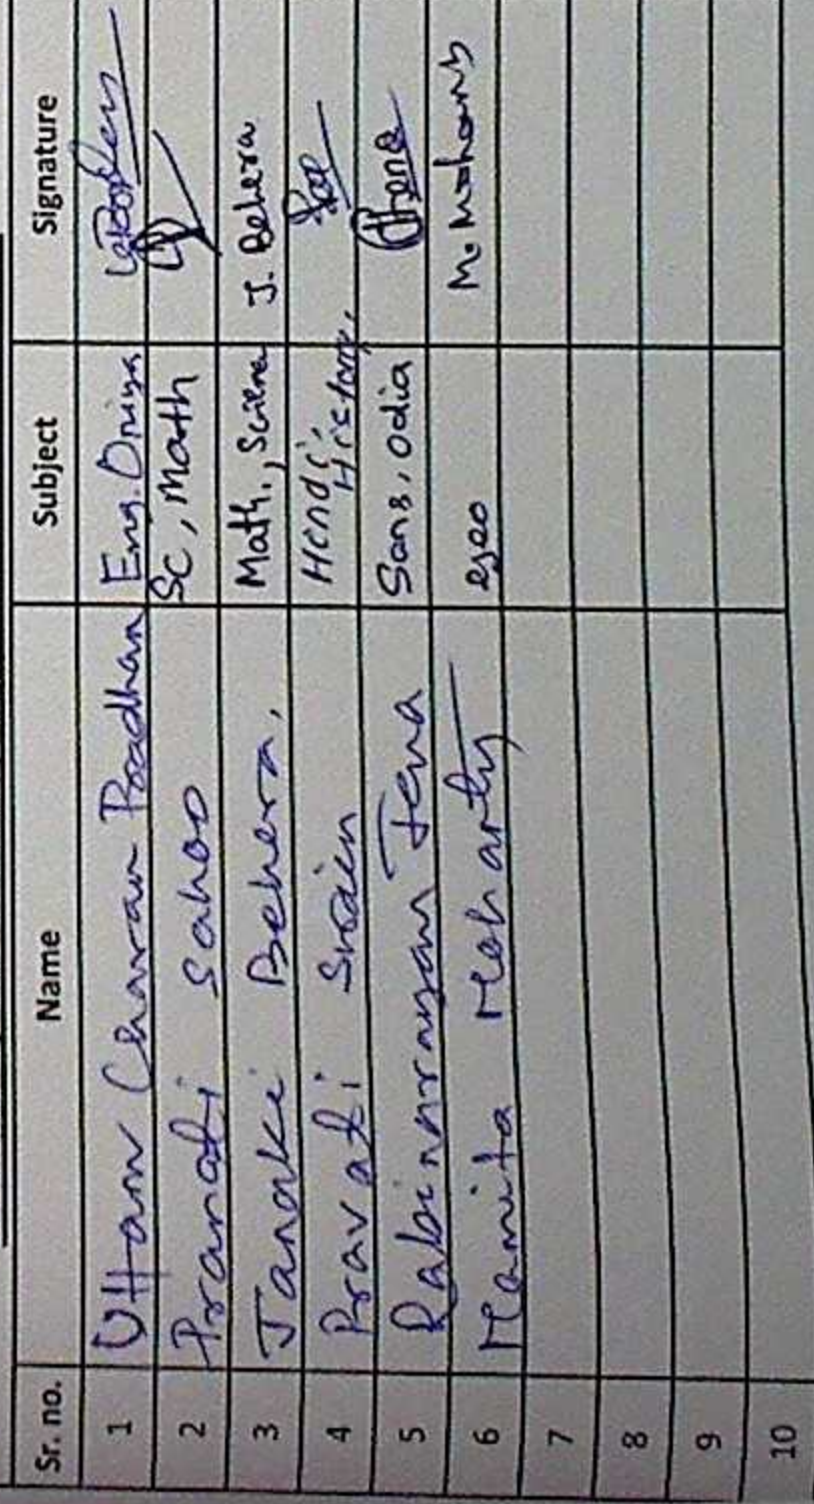 Sr. no. Name Subject Signature
1 Uttam Charan Pradhan Eng. Oriya
2 Pranati Sahoo Sc, Math
3 Janaki Behera, Math., Science J. Behera
4 Pravati Swain Hendi, History,
5 Rabinarayan Jena Sans, Odia
6 Mamita Mohanty geo M. Mohanty
7
8
9
10